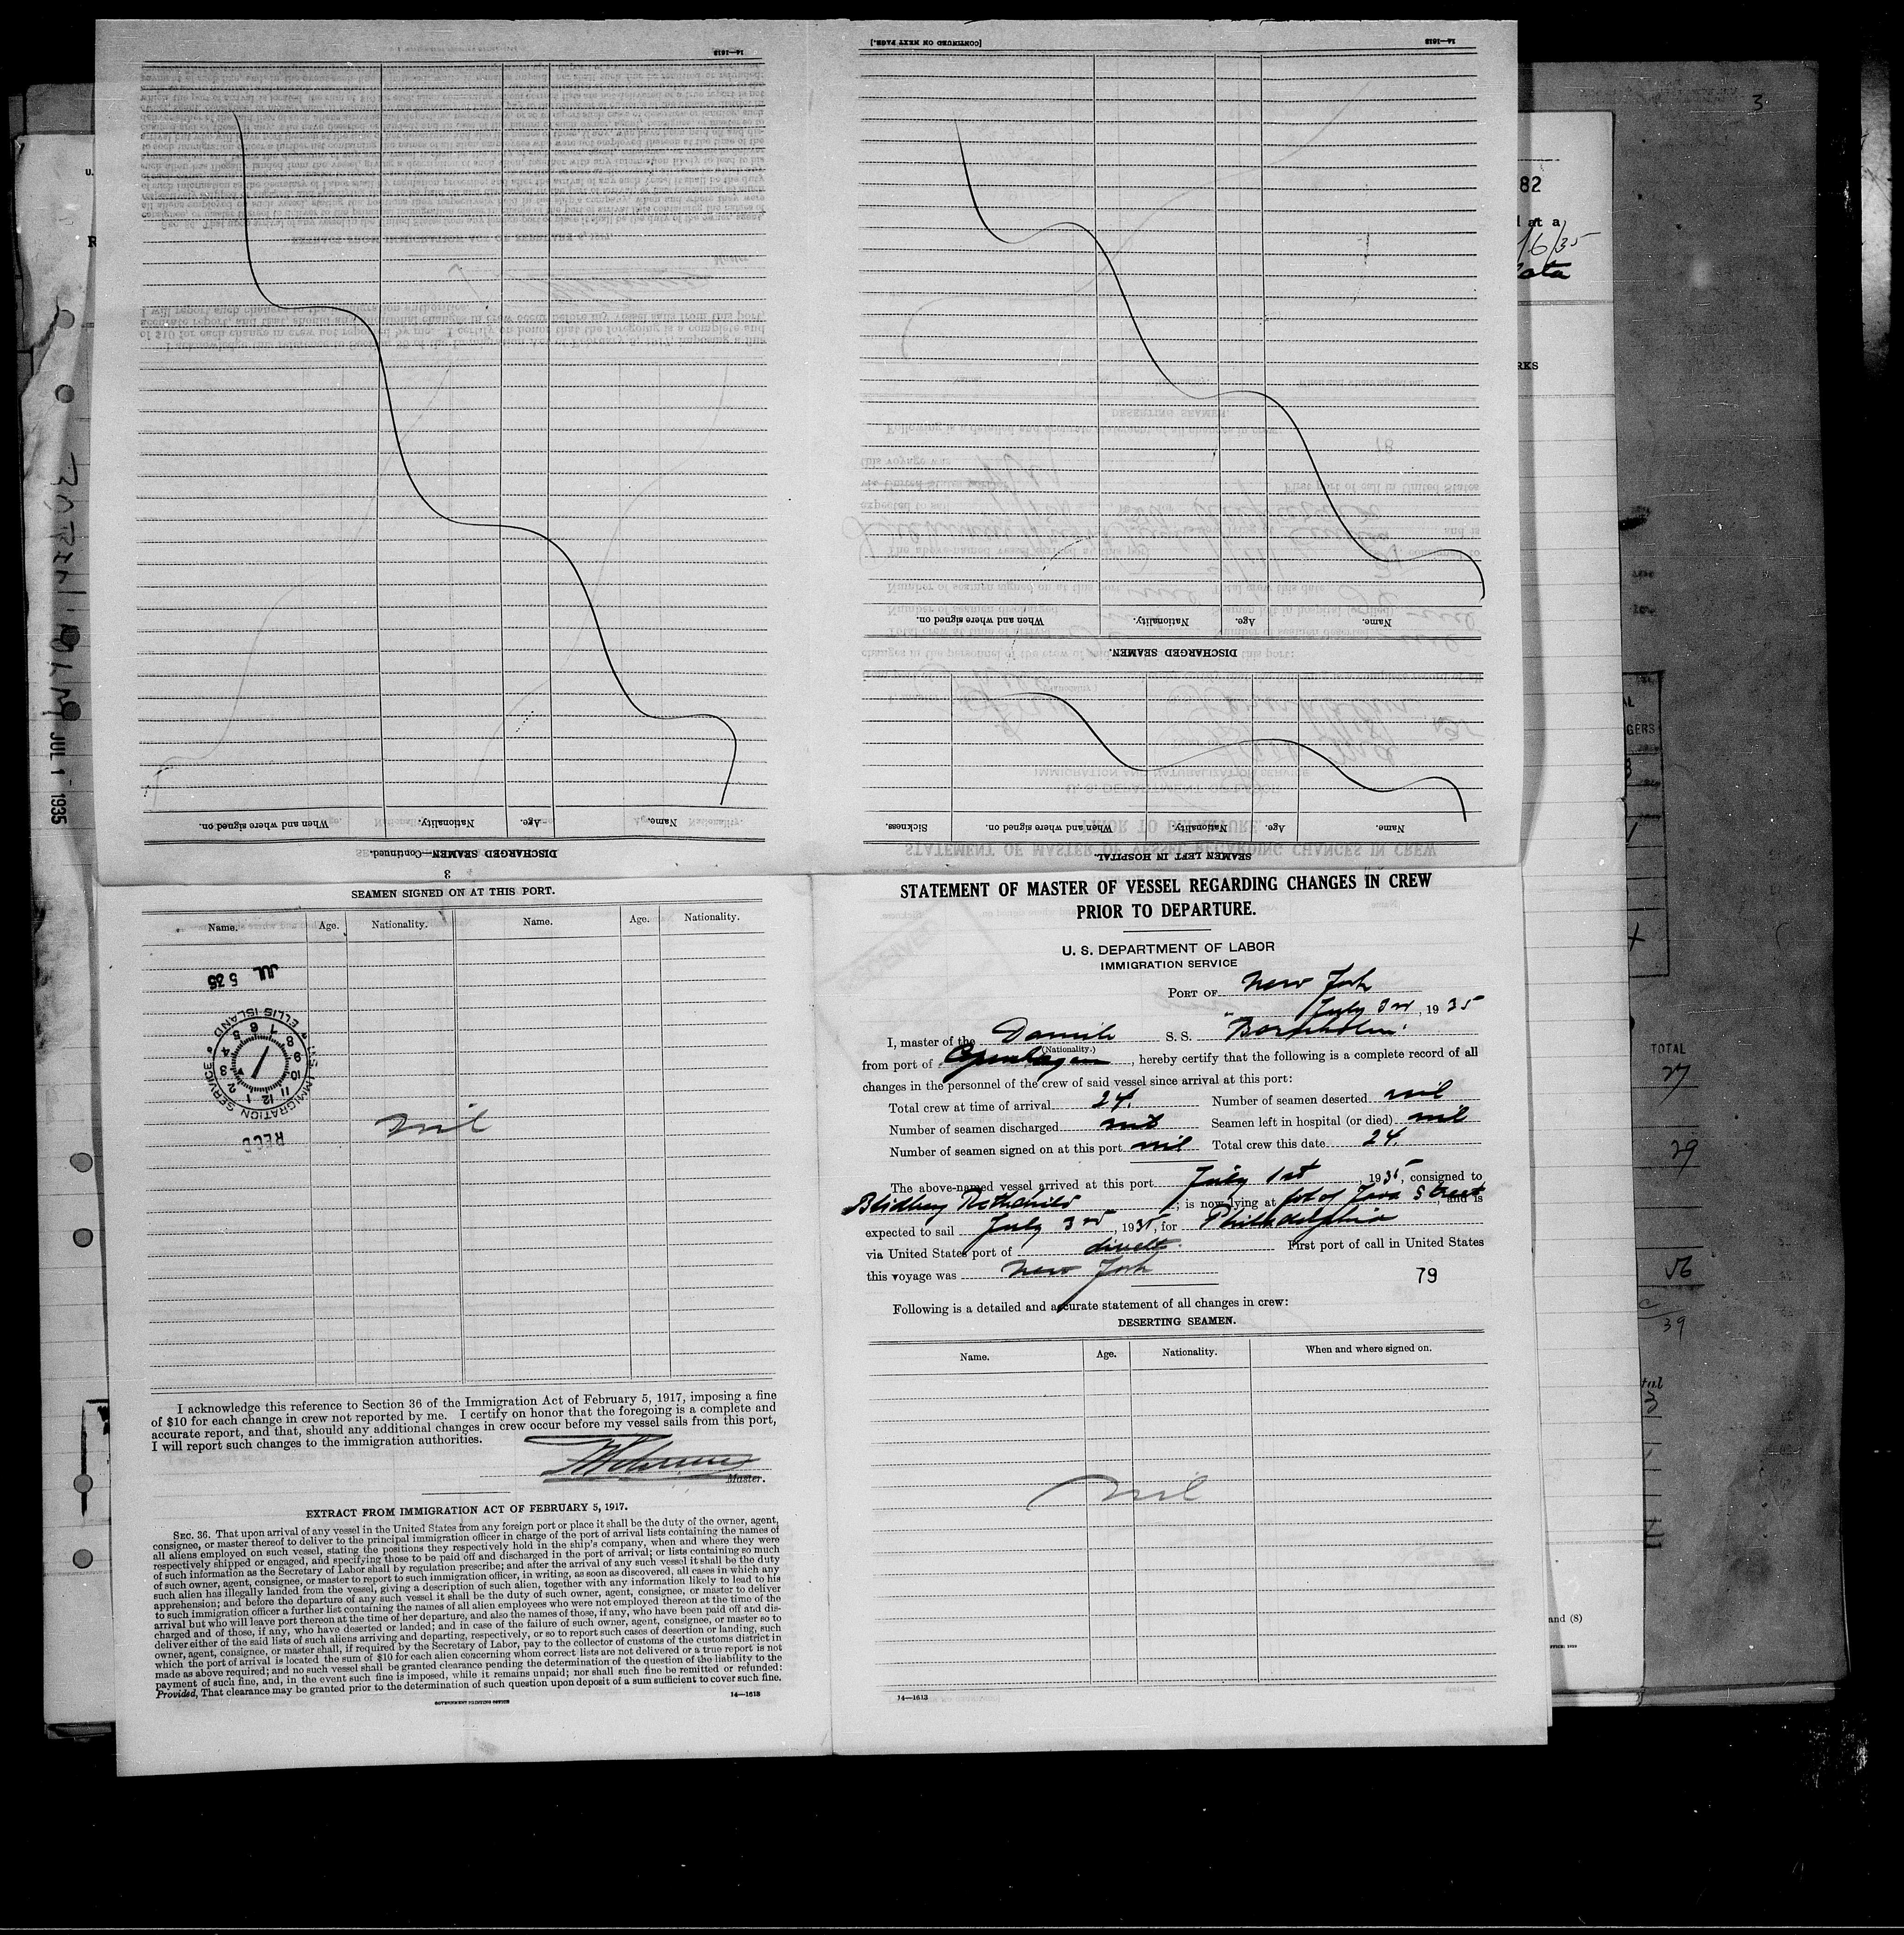 STATEMENT OF MASTER OF VESSEL REGARDING CHANGES IN CREW
PRIOR TO DEPARTURE.
U. S. DEPARTMENT OF LABOR
IMMIGRATION SERVICE
PORT OF New York
July 3rd, 1935
I, master of the Danish S. S. "Bornholm"
(Nationality.)
from port of Copenhagen, hereby certify that the following is a complete record of all
changes in the personnel of the crew of said vessel since arrival at this port:
Total crew at time of arrival 24. Number of seamen deserted nil
Number of seamen discharged nil Seamen left in hospital (or died) nil
Number of seamen signed on at this port nil Total crew this date 24.
The above-named vessel arrived at this port July 1st, 1935, consigned to
Rothchild; is now lying at fot of Java Street and is
expected to sail July 3rd, 1935, for Philadelphia
via United States port of First port of call in United States
this voyage was New York
79
Following is a detailed and accurate statement of all changes in crew:
DESERTING SEAMEN.
Name. Age. Nationality. When and where signed on.
nil
14—1613
3
SEAMEN SIGNED ON AT THIS PORT.
Name. Age. Nationality. Name. Age. Nationality.
JUL 5 35
U.S. IMMIGRATION SERVICE ELLIS ISLAND
REC'D
nil
I acknowledge this reference to Section 36 of the Immigration Act of February 5, 1917, imposing a fine
of $10 for each change in crew not reported by me. I certify on honor that the foregoing is a complete and
accurate report, and that, should any additional changes in crew occur before my vessel sails from this port,
I will report such changes to the immigration authorities.
Master.
EXTRACT FROM IMMIGRATION ACT OF FEBRUARY 5, 1917.
SEC. 36. That upon arrival of any vessel in the United States from any foreign port or place it shall be the duty of the owner, agent,
consignee, or master thereof to deliver to the principal immigration officer in charge of the port of arrival lists containing the names of
all aliens employed on such vessel, stating the positions they respectively hold in the ship's company, when and where they were
respectively shipped or engaged, and specifying those to be paid off and discharged in the port of arrival; or lists containing so much
of such information as the Secretary of Labor shall by regulation prescribe; and after the arrival of any such vessel it shall be the duty
of such owner, agent, consignee, or master to report to such immigration officer, in writing, as soon as discovered, all cases in which any
such alien has illegally landed from the vessel, giving a description of such alien, together with any information likely to lead to his
apprehension; and before the departure of any such vessel it shall be the duty of such owner, agent, consignee, or master to deliver
to such immigration officer a further list containing the names of all alien employees who were not employed thereon at the time of the
arrival but who will leave port thereon at the time of her departure, and also the names of those, if any, who have been paid off and dis-
charged and of those, if any, who have deserted or landed; and in case of the failure of such owner, agent, consignee, or master so to
deliver either of the said lists of such aliens arriving and departing, respectively, or so to report such cases of desertion or landing, such
owner, agent, consignee, or master shall, if required by the Secretary of Labor, pay to the collector of customs of the customs district in
which the port of arrival is located the sum of $10 for each alien concerning whom correct lists are not delivered or a true report is not
made as above required; and no such vessel shall be granted clearance pending the determination of the question of the liability to the
payment of such fine, and, in the event such fine is imposed, while it remains unpaid; nor shall such fine be remitted or refunded:
Provided, That clearance may be granted prior to the determination of such question upon deposit of a sum sufficient to cover such fine.
GOVERNMENT PRINTING OFFICE 14—1613
SEAMEN LEFT IN HOSPITAL.
Name. Age. Nationality. When and where signed on. Sickness.
DISCHARGED SEAMEN.
Name. Age. Nationality. When and where signed on.
14—1613 [CONTINUED ON NEXT PAGE.]
DISCHARGED SEAMEN—Continued.
Name. Age. Nationality. When and where signed on.
14—1613
JUL 1 1935
3
82
16/35
TOTAL
27
29
56
39
and (S)